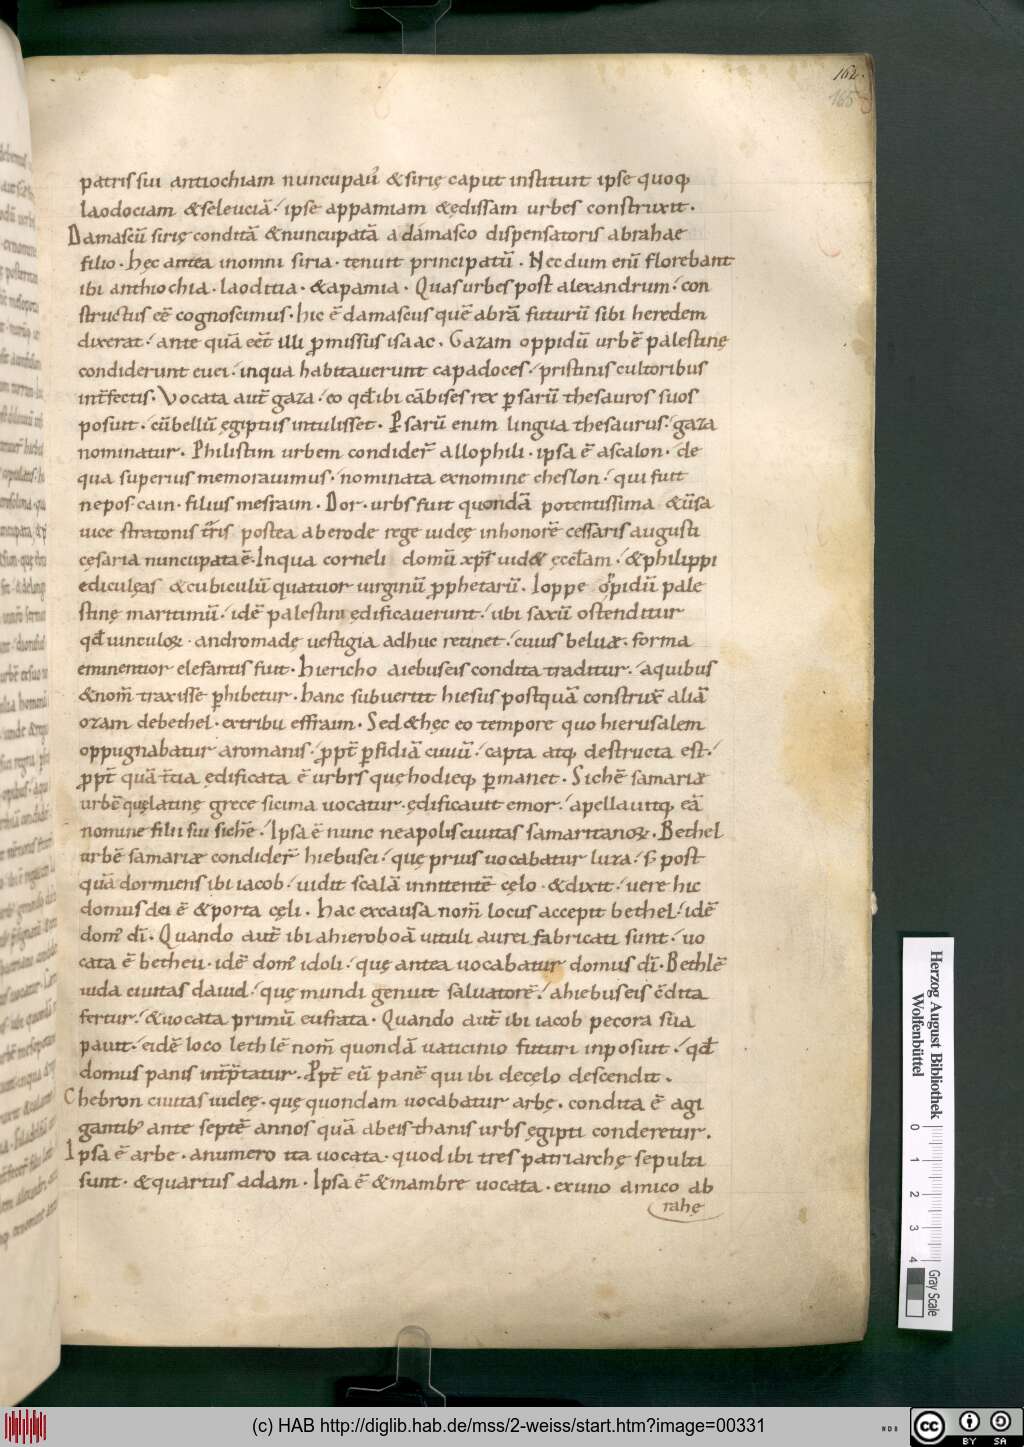 162.
165
patris sui antiochiam nuncupau᷑ & sirię caput instituit ipse quoq;
laodociam & seleuciā. ipse appamiam & ędissam urbes construxit.
Damascū sirię conditā & nuncupatā a damasco dispensatoris abrahae
filio. hęc antea in omni siria. tenuit principatū. Nec dum enī florebant
ibi anthiochia. laoditia. & apamia. Quas urbes post alexandrum. con
structus eē cognoscimus. hic ē damascus quē abrā futurū sibi heredem
dixerat. ante quā eēt illi ꝓmissus isaac. Gazam oppidū urbē palestinę
condiderunt euei. in qua habitauerunt capadoces. pristinis cultoribus
int̄fectis. Vocata aut̄ gaza. eo qd̄ ibi cābises rex ꝑsarū thesauros suos
posuit. cū bellū ęgiptiis intulisset. Ꝑsarū enim lingua thesaurus. gaza
nominatur. Philistim urbem condider̄ allophili. ipsa ē ascalon. de
qua superius memorauimus. nominata ex nomine cheslon. qui fuit
nepos cain. filius mesraim. Dor. urbs fuit quondā potentissima & uersa
uice stratonis t̄ris postea ab erode rege iudeę in honorē cessaris augusti
cęsaria nuncupata ē. In qua corneli domū xp̄s uid& ęcclam. & philippi
ediculęas & cubiculū quatuor uirginū ꝓphetarū. Ioppe oppidū pale
stinę maritimū. idē palestini ędificauerunt. ubi saxū ostenditur
qd̄ uinculoꝝ. andromadę uestigia adhuc retinet. cuius beluæ. forma
eminentior elefantis fuit. hiericho a iebuseis condita traditur. a quibus
& nom̄ traxisse ꝑhibetur. hanc subuertit hiesus postquā construx̄ aliā
ozam de bethel. ex tribu effraim. Sed & hęc eo tempore quo hierusalem
oppugnabatur a romanis. ꝓpt̄ ꝑfidiā ciuiū. capta atq; destructa est.
ꝓpt̄ quā t̄cia ędificata ē urbrs quę hodieq; ꝑmanet. Sichē samariæ
urbē quę latinę grece sicima uocatur. ędificauit emor. apellauitq; eā
nomine filii sui sichē. Ipsa ē nunc neapolis ciuitas samaritanoꝝ. Bethel
urbē samariæ condider̄ hiebusei. quę prius uocabatur luza. s; post
quā dormiens ibi iacob. uidit scalā innitentē cęlo. & dixit. uere hic
domus dei ē & porta cęli. hac ex causa nom̄ locus accepit bethel. idē
dom; dī. Quando aut̄ ibi a hieroboā uituli aurei fabricati sunt. uo
cata ē betheu. idē dom; idoli. quę antea uocabatur domus dī. Bethlē
iuda ciuitas dauid. quę mundi genuit saluatorē. a hiebuseis c̄dita
fertur. & uocata primū eufrata. Quando aut̄ ibi iacob pecora sua
pauit. eidē loco lethlē nom̄ quondā uaticinio futuri inposuit. qd̄
domus panis int̄p̄tatur. Ꝓpt̄ eū panē qui ibi de cęlo descendit.
Chebron ciuitas iudeę. quę quondam uocabatur arbę. condita ē a gi
gantib; ante septē annos quā ab eis thanis urbs ęgipti conderetur.
Ipsa ē arbe. a numero ita uocata. quod ibi tres patriarchę sepulti
sunt. & quartus adam. Ipsa ē & mambre uocata. ex uno amico ab
rahę
Herzog August Bibliothek
Wolfenbüttel
0 1 2 3 4
Gray Scale
(c) HAB http://diglib.hab.de/mss/2-weiss/start.htm?image=00331
WDB
cc BY SA